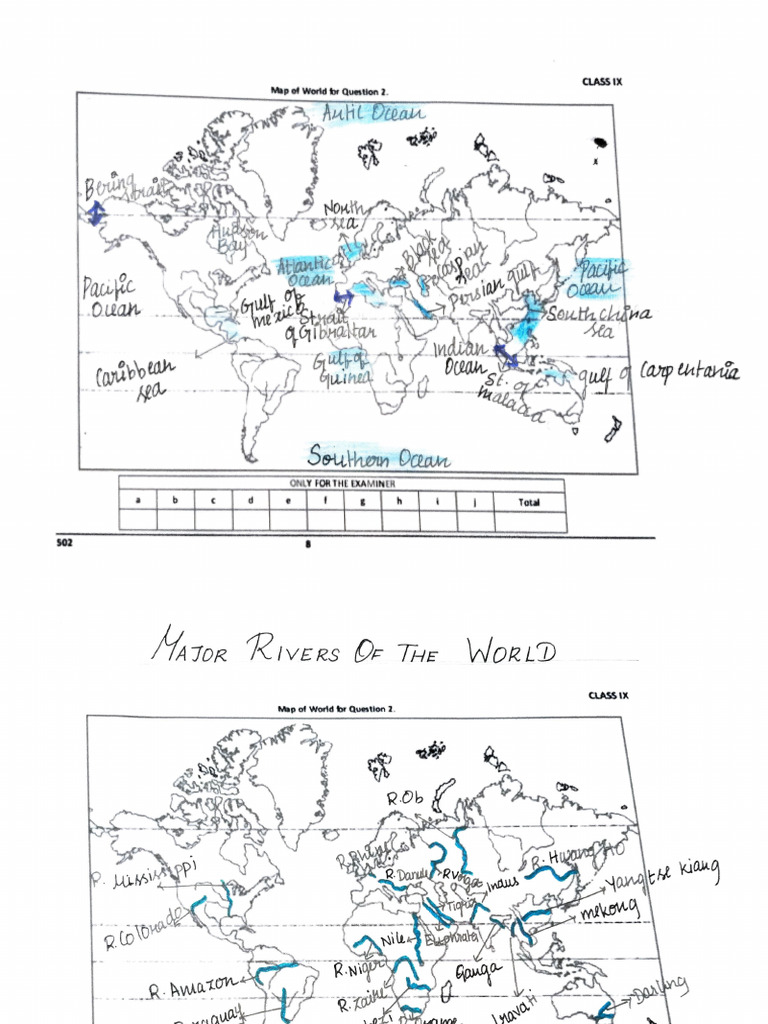 CLASS IX
Map of World for Question 2.
Antic Ocean
Bering
Strait
North
sea
Hudson
Bay
Black
Sea
Caspian
sea
Atlantic
Ocean
Pacific
Ocean
Persian gulf
Pacific
Ocean
Gulf of
mexico
Strait
of Gibraltar
South china
sea
Indian
Ocean
Caribbean
sea
Gulf of
Guinea
gulf of Carpentania
St. of
malacca
Southern Ocean
ONLY FOR THE EXAMINER
a b c d e f g h i j Total
502
8
MAJOR RIVERS OF THE WORLD
CLASS IX
Map of World for Question 2.
R. Ob
R. Rhine
R. Mississippi
R. Danub
R. Volga
R. Hwang Ho
Indus
Yangtse kiang
Tigris
mekong
R. Colorado
Nile
Euphrates
R. Niger
Ganga
R. Amazon
R. Zaire
Darling
Paraguay
Iravati